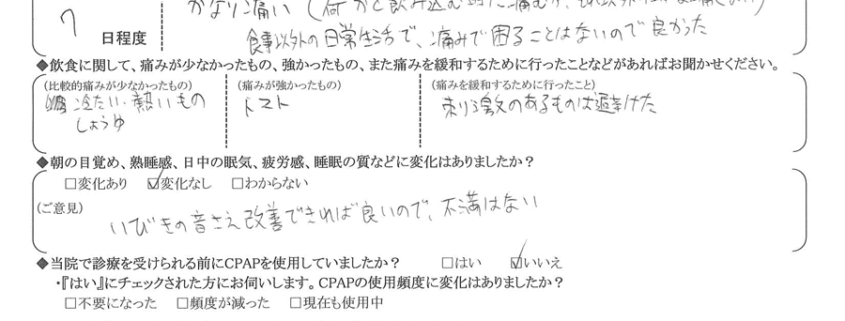 かなり痛い(何かを飲み込む時に痛むが、それ以外は
7 日程度
食事以外の日常生活で、痛みで困ることはないので良かった
◆飲食に関して、痛みが少なかったもの、強かったもの、また痛みを緩和するために行ったことなどがあればお聞かせください。
(比較的痛みが少なかったもの) (痛みが強かったもの) (痛みを緩和するために行ったこと)
冷たい・熱いもの トマト 刺激のあるものは避けた
しょうゆ
◆朝の目覚め、熟睡感、日中の眠気、疲労感、睡眠の質などに変化はありましたか?
□変化あり ☑変化なし □わからない
(ご意見)
いびきの音さえ改善できれば良いので、不満はない
◆当院で診療を受けられる前にCPAPを使用していましたか? □はい ☑いいえ
・『はい』にチェックされた方にお伺いします。CPAPの使用頻度に変化はありましたか?
□不要になった □頻度が減った □現在も使用中